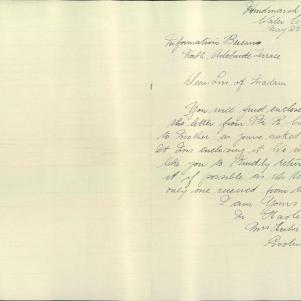 Hindmarsh
Water
May 22
Information Bureau
North Adelaide Terrace
Dear Sir of Madam
You will find enclosed
the letter from Pte
to Mother as youve asked
Im enclosing it We
like you to Kindly return
it if possible as its the
only one received from
I am Yours
Mrs